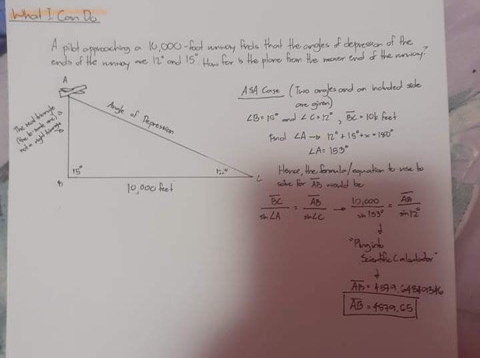 What I Can Do.
A pilot approaching a 10,000-foot runway finds that the angles of depression of the
ends of the runway are 12° and 15°. How far is the plane from the nearer end of the runway?
A
Angle of Depression
not a right triangle
15°
12°
B
C
10,000 feet
ASA Case (Two angles and an included side
are given)
∠B=15° and ∠C=12°, BC = 10k feet
Find ∠A → 12° + 15° + x = 180°
∠A = 153°
Hence, the formula/equation to use to
solve for AB would be
BC/sin∠A = AB/sin∠C → 10,000/sin153° = AB/sin12°
"Plug into
Scientific Calculator"
AB = 4579.64849346
AB = 4579.65